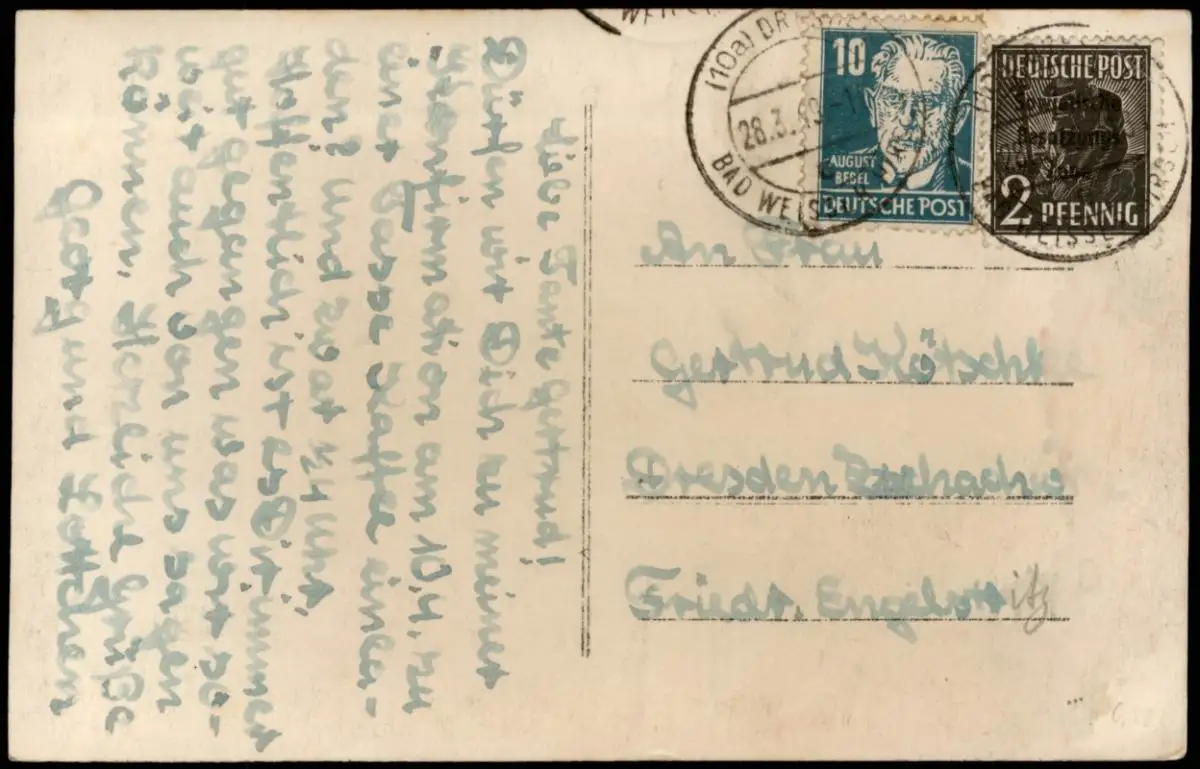 Liebe Tante Gertrud!
Dürfen wir Dich zu meiner
Konfirmation am 10.4. zu
einer Tasse Kaffee einla-
den? und zwar ½4 Uhr
Hoffentlich ist es Dir immer
gut gegangen was wir so-
weit auch von uns sagen
können. Herzliche Grüße
Georg und Lottchen
10
AUGUST
BEBEL
DEUTSCHE POST
DEUTSCHE POST
Sowjetische
Besatzungs
Zone
2 PFENNIG
(10a) DRESDEN
28.3.
BAD WEISSER HIRSCH
An Frau
Gertrud Kötschke
Dresden
Friedr. Engelsstr